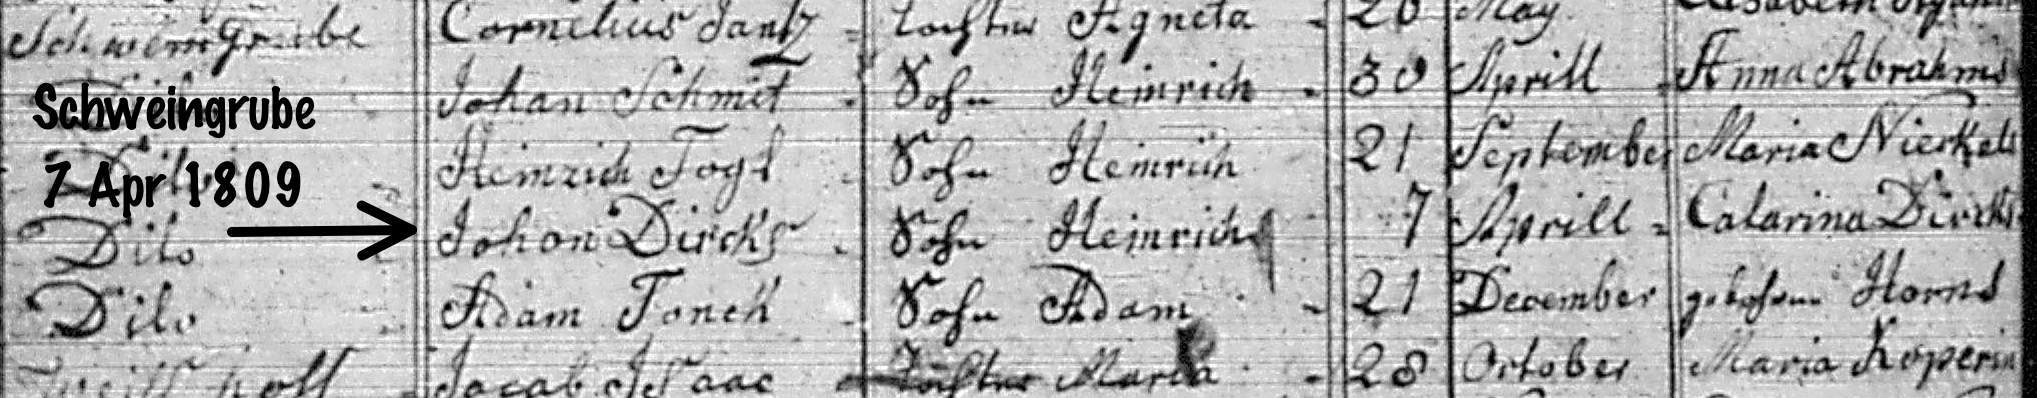 Schweingrube Cornelius Jantz tochter Agneta 20 May
Johan Schmit Sohn Heinrich 30 Aprill Anna Abrahms
Schweingrube
Dito Heinrich Fogt Sohn Heinrich 21 September Maria Nickels
7 Apr 1809
Dito Johan Dircks Sohn Heinrich 7 Aprill Catarina Dircks
Dito Adam Sohn Adam 21 December gebohrne Horns
Jacob Isaac tochter Maria 28 October Maria